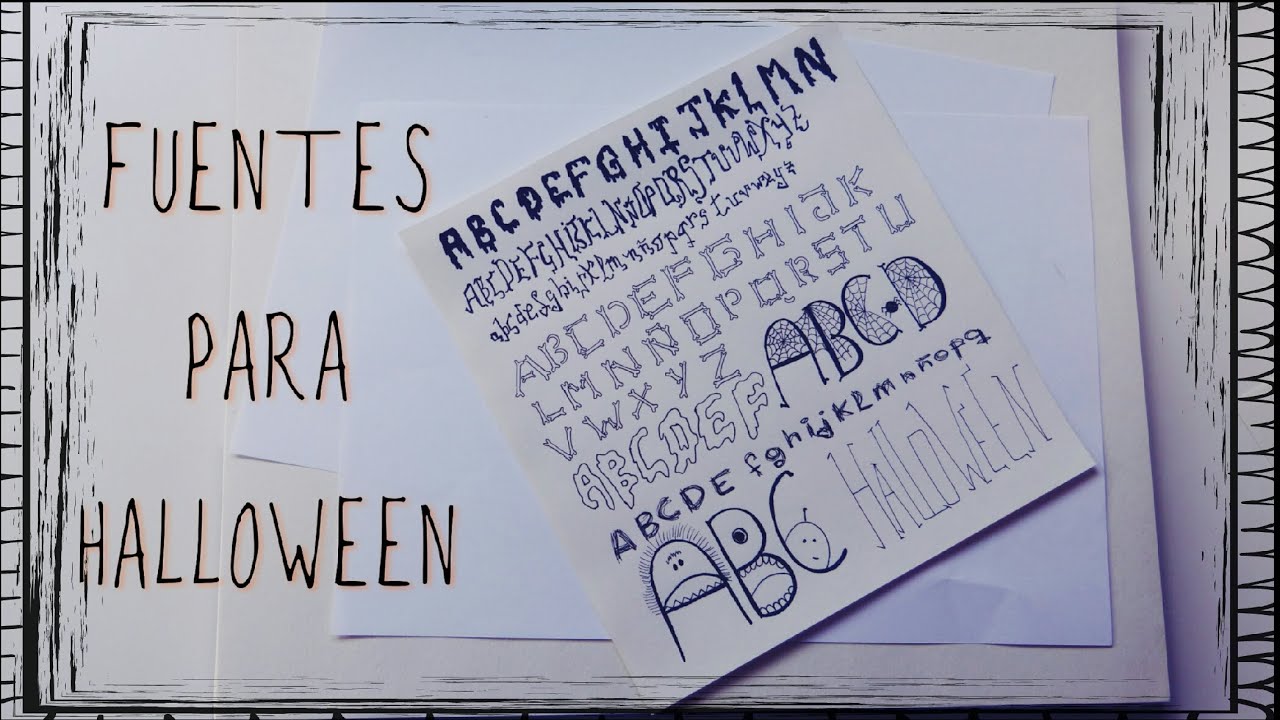 FUENTES
PARA
HALLOWEEN
ABCDEFGHIJKLMN
ABCDEFGHIJKLMNÑOPQRSTUVWXYZ
abcdefghijklmnñopqrstuvwxyz
ABCDEFGHIJK
LMNÑOPQRSTU
VWXYZ
ABCD
ABCDEF
ABCDEfghijklmnñopq
ABC
HALLOWEEN